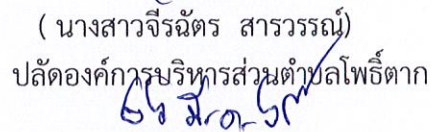 ( นางสาวจีรฉัตร สารวรรณ์)
ปลัดองค์การบริหารส่วนตำบลโพธิ์ตาก